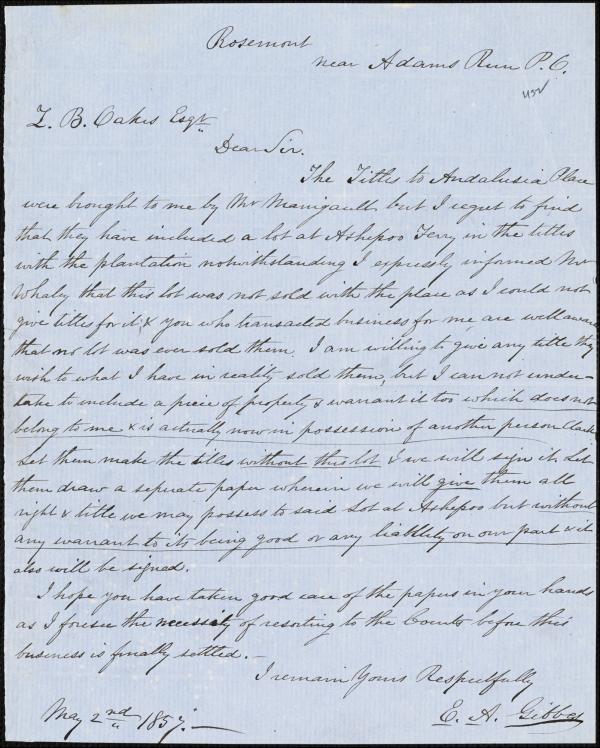 Rosemont
near Adams Run P.O.
Z. B. Oakes Esqr
Dear Sir.
The Titles to Andalusia Place
were brought to me by Mr Manigault but I regret to find
that they have included a lot at Ashepoo Ferry in the titles
with the plantation notwithstanding I expressly informed Mr
Whaley that this lot was not sold with the place as I could not
give titles for it, & you who transacted business for me, are well aware
that no lot was ever sold them. I am willing to give any title they
wish to what I have in reality sold them, but I can not under-
take to include a piece of property & warrant it too which does not
belong to me & is actually now in possession of another person Clark
Let them make the titles without this lot & we will sign it. Let
them draw a seperate paper wherein we will give them all
right & title we may possess to said Lot at Ashepoo but without
any warrant to its being good or any liability on our part & it
also will be signed.
I hope you have taken good care of the papers in your hands
as I foresee the necessity of resorting to the Courts before this
business is finally settled.—
I remain Yours Respectfully
May 2nd 1857.— E. A. Gibbes